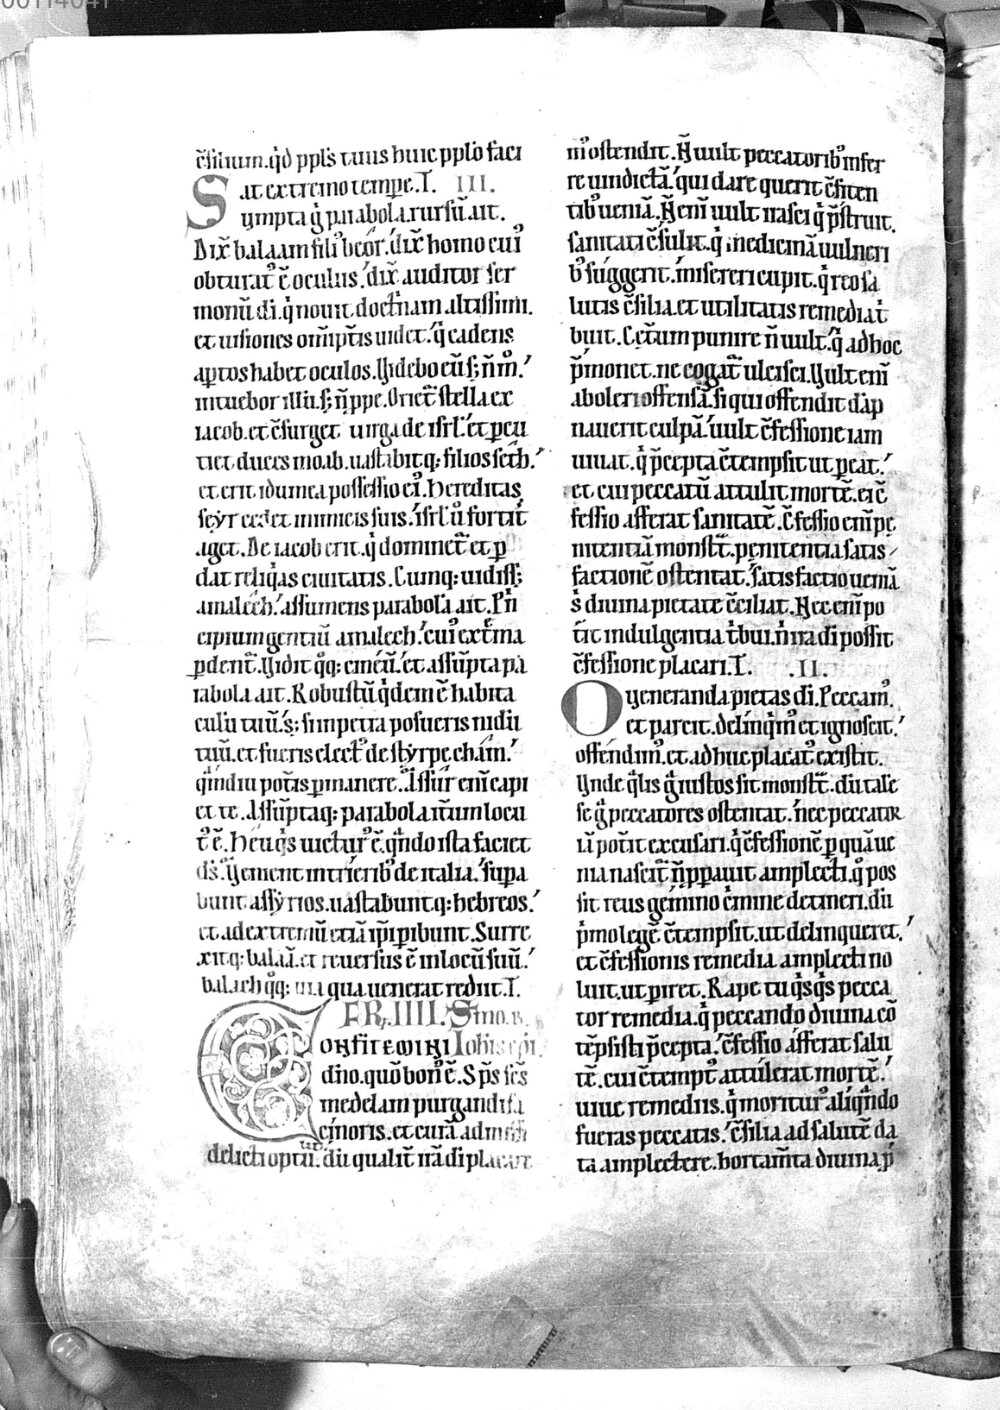 00114041
c̄silium. qd̓ ppl's tuus huic pplo faci
at extremo tempe. T. III.
Sympta g̓ parabola. rursū. ait.
Dix̄ balaam fili᷒ beor. dix̄ homo cui᷒
obturat᷒ ē oculus. dix̄ auditor ser
monū di. q̓ nouit doctnam altissimi.
et uisiones om̄iptīs uidet. q̓ cadens
aptos habet oculos. Uidebo eū s; ñ m᷒.
intuebor illū. s; ñ ppe. Oriet᷒ stella ex
iacob. et c̄surget uirga de isrl'. et pcu
tiet duces moab. uastabitq; filios seth.
et erit idumea possessio ei᷒. hereditas
seyr cedet inimicis suis. isrl' ū fortit̓
aget. De iacob erit. q̓ dominet᷒ et p
dat reliq̓as ciuitatis. Cumq; uidiss;
amalech. assumens parabolā ait. Pn̄
cipium gentiū amalech. cui᷒ ext̓ma
pdent᷒. Uidit q̓q; cineū. et assūpta pa
rabola ait. Robustū q̓dem ē habita
culū tuū. s; si in petra posueris nidū
tuū. et fueris elect᷒ de styrpe cham.
q̓mdiu potis pmanere. Assur eni capi
et te. Assūptaq; parabola itūm locu
t᷒ ē. Heu q̓s uictur᷒ ē. q̓ndo ista faciet
ds̄. Uenient in trierib᷒ de italia. supa
bunt assyrios. uastabuntq; hebreos.
et ad extremū etiā ip̄i pibunt. Surre
xitq; balaā. et reuersus ē in locū suū.
balach q̓q; uia qua uenerat rediit. T.
FR. IIII. Smo. B.
Confitemini Iohis epi.
dn̄o. quō bon᷒ ē. Sp̄s sc̄s
medelam purgandi fa
cinoris. et curā admissi
delicti optū. dū qualit᷒ irā di placare
m᷒ ostendit. Ñ uult peccatorib᷒ infer
re uindictā. qui dare querit c̄fiten
tib᷒ ueniā. Ñ eni uult irasci q̓ p̄struit.
sanitati c̄sulit. q̓ medicinā uulneri
b᷒ suggerit. misereri cupit. q̓ reo sa
lutis c̄silia. et utilitatis remedia t̓
buit. Cet̓um punire ñ uult. q̓ ad hoc
p̓monet. ne cogat᷒ ulcisci. Uult eni
aboleri offensā. si qui offendit dāp
nauerit culpā. uult c̄fessione iam
uiuat. q̓ p̄cepta c̄tempsit ut peat.
et cui peccatū attulit mortē. ei c̄
fessio afferat sanitatē. C̄fessio enī pe
nitentiā monst᷒. penitentia satis
factionē ostentat. satisfactio ueniā
s; diuina pietate c̄ciliat. Nec enī po
tit indulgentia t̓bui. ñ ira di possit
c̄fessione placari. T. .II.
O ueneranda pietas di. Peccam᷒.
et parcit. delinq̓m᷒ et ignoscit.
offendim᷒. et adhuc placat᷒ existit.
Unde q̓lis g̓ iustos sit monst᷒. dū tale
se g̓ peccatores ostentat. nec peccator
iā potit excusari. q̓ c̄fessionē p quā ue
nia nascit᷒ ñ ppauit amplecti. q̓ pos
sit reus gemino c̓mine detineri. dū
p̓mo legē c̄tempsit. ut delinqueret.
et c̄fessionis remedia amplecti no
luit. ut piret. Rape tu q̓sq̓s pecca
tor remedia. q̓ peccando diuina cō
tēpsisti p̄cepta. c̄fessio afferat salu
tē. cui c̄tempt᷒ attulerat mortē.
uiue remediis. q̓ moritur᷒ aliq̓ndo
fueras peccatis. c̄silia ad salutē da
ta amplectere. hortam̄ta diuina p̓